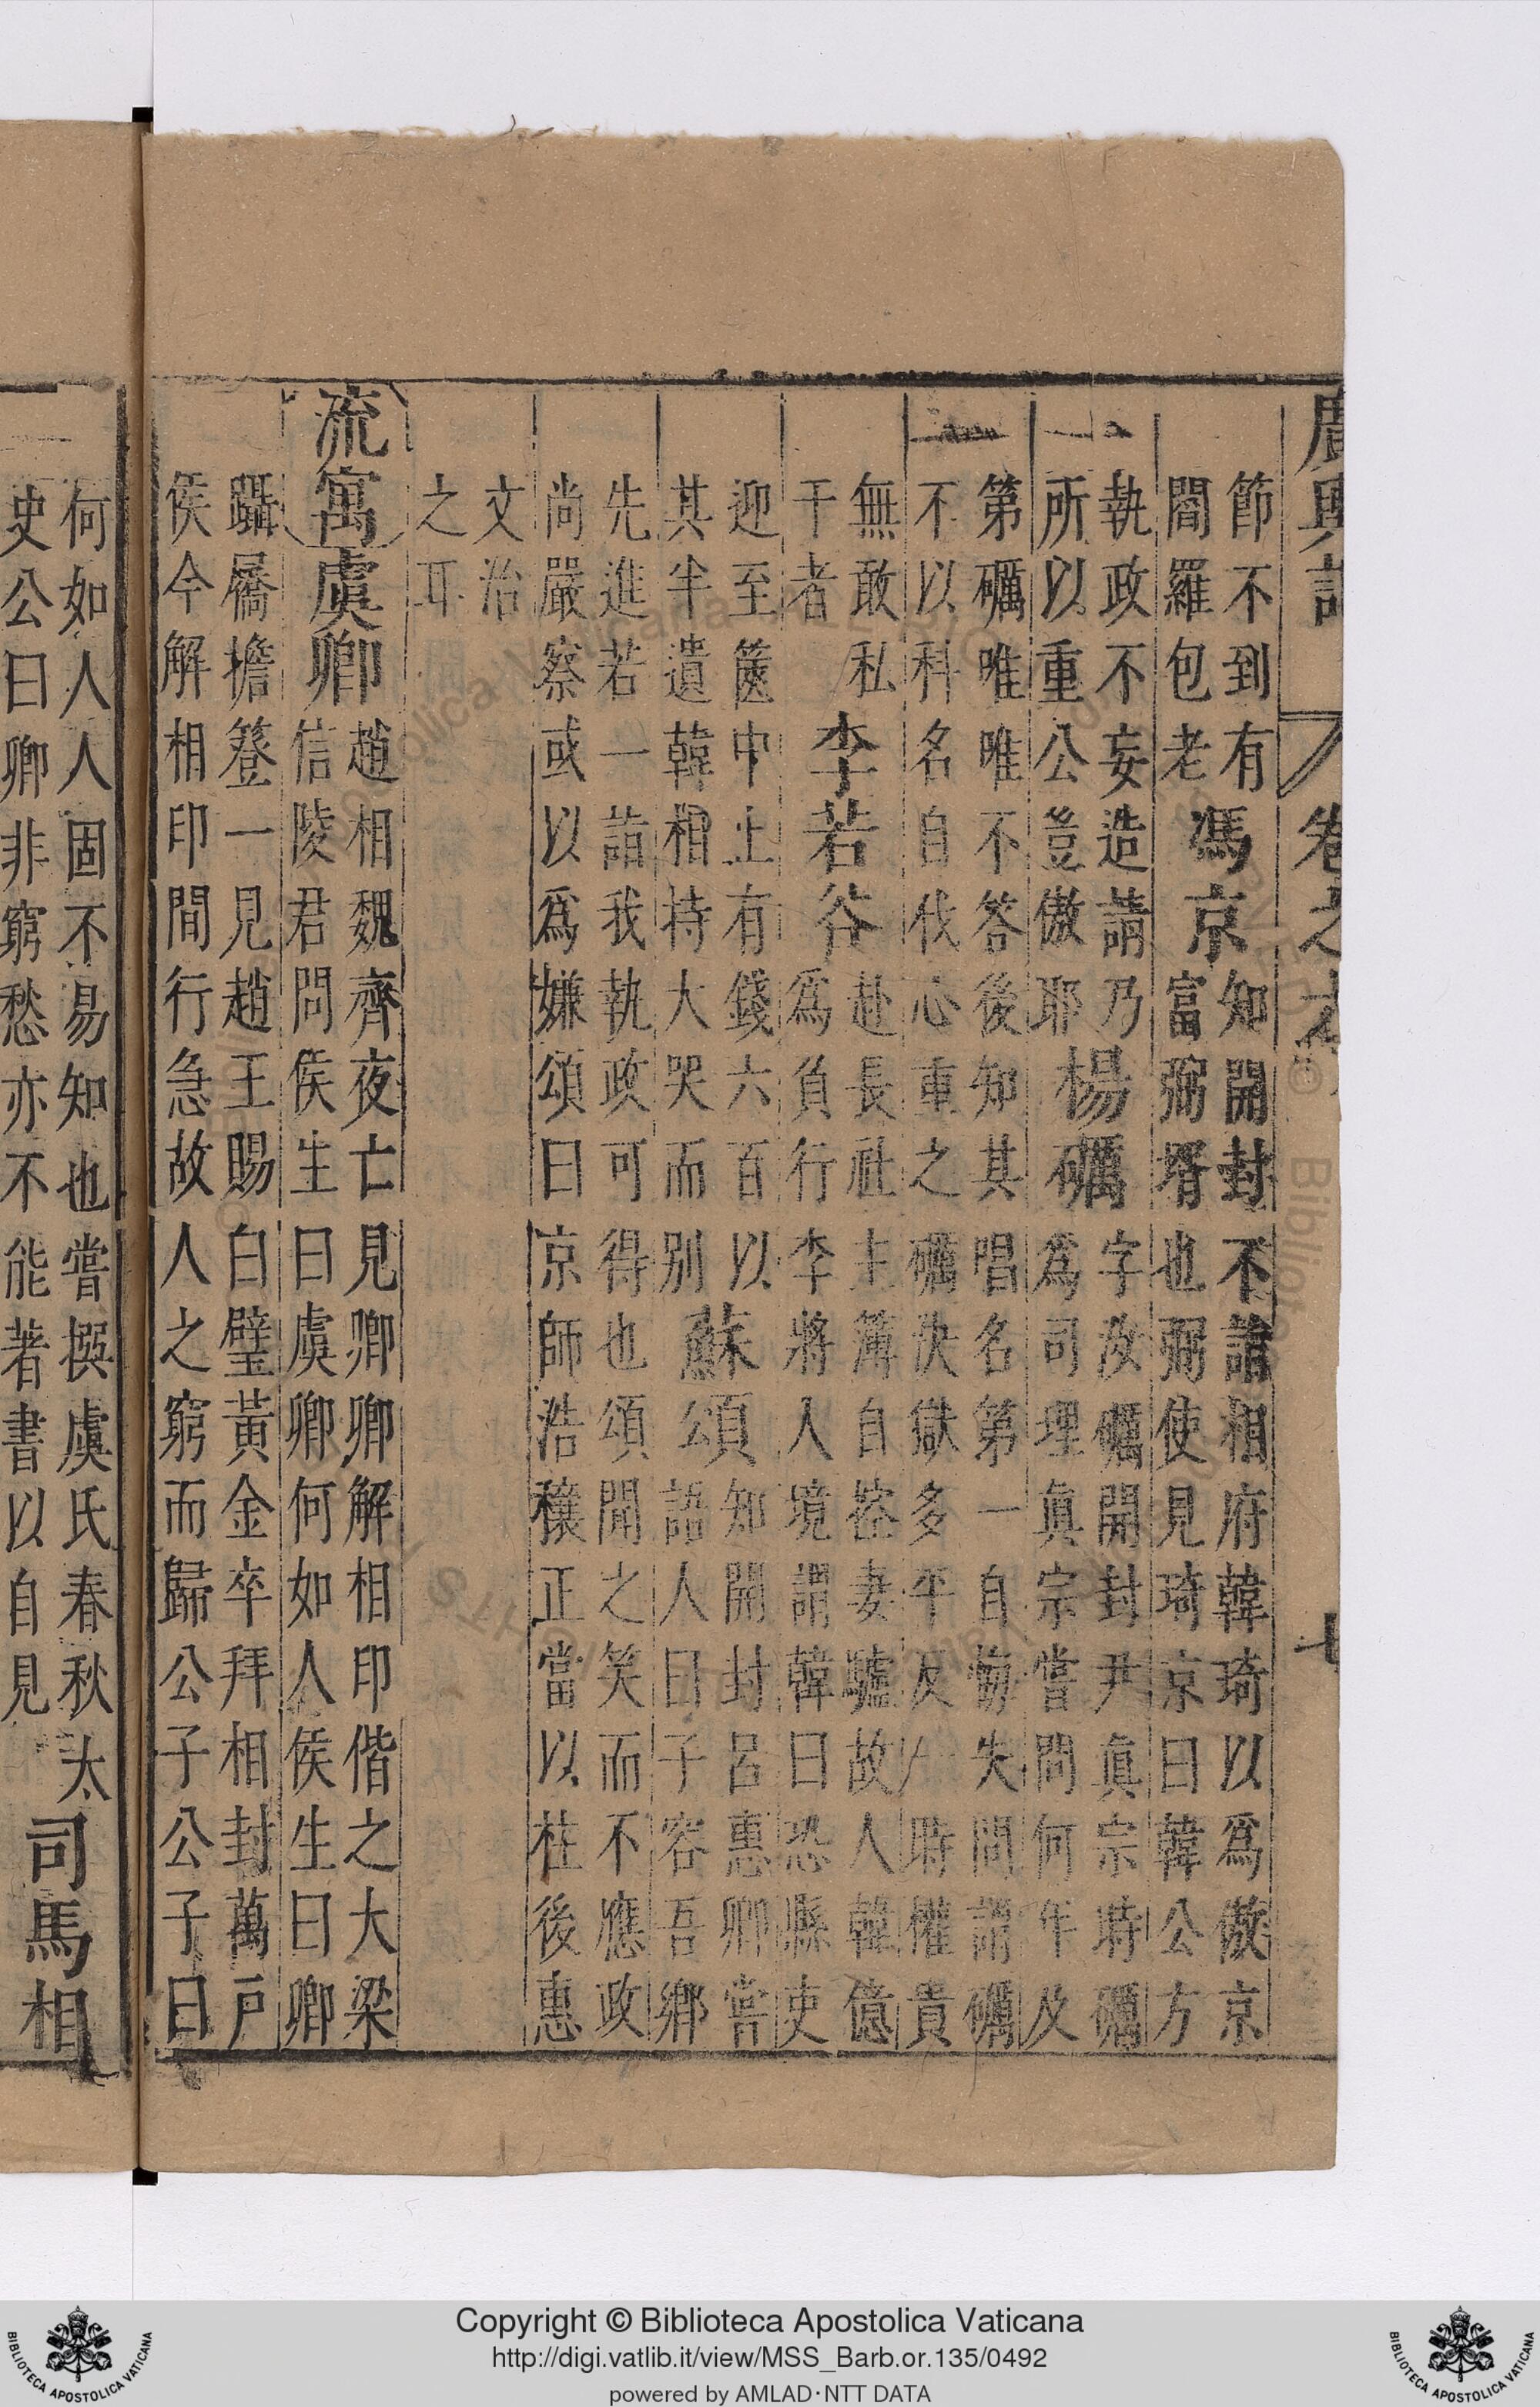 廣輿記 卷之 七
節不到有
閻羅包老
馮京
知開封不謁相府韓琦以爲傲京
富弼壻也弼使見琦京曰韓公方
執政不妄造請乃
所以重公豈傲耶
楊礪
字汝礪開封尹真宗時礪
爲司理真宗嘗問何年及
第礪唯唯不答後知其唱名第一自悔失問謂礪
不以科名自伐心重之礪決獄多平反時權貴
無敢私
干者
李若谷
赴長社主簿自控妻驢故人韓億
爲負行李將入境謂韓曰恐縣吏
迎至篋中止有錢六百以
其半遺韓相持大哭而別
蘇頌
知開封呂惠卿嘗
語人曰子容吾鄉
先進若一詣我執政可得也頌聞之笑而不應政
尚嚴察或以爲嫌頌曰京師浩穰正當以柱後惠
文治
之耳
流寓
虞卿
趙相魏齊夜亡見卿卿解相印偕之大梁
信陵君問侯生曰虞卿何如人侯生曰卿
躡屩擔簦一見趙王賜白璧黃金卒拜相封萬戶
侯今解相印間行急故人之窮而歸公子公子曰
何如人人固不易知也嘗撰虞氏春秋太
史公曰卿非窮愁亦不能著書以自見
司馬相
Copyright © Biblioteca Apostolica Vaticana
http://digi.vatlib.it/view/MSS_Barb.or.135/0492
powered by AMLAD·NTT DATA
BIBLIOTECA APOSTOLICA VATICANA
BIBLIOTECA APOSTOLICA VATICANA